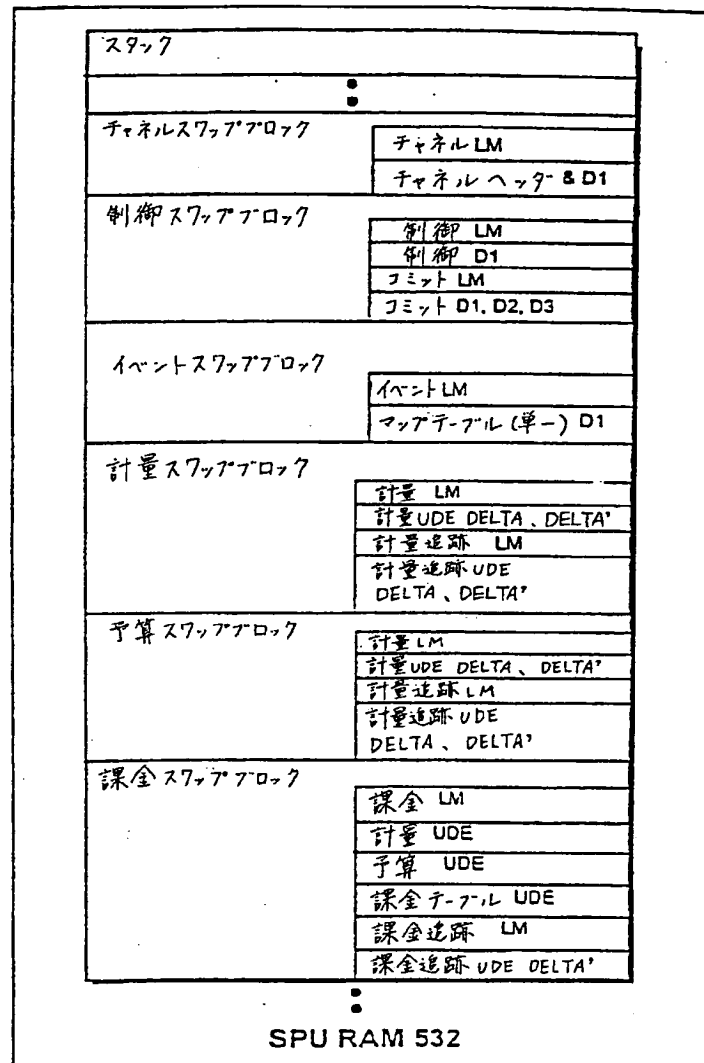 スタック
チャネルスワップブロック
チャネル LM
チャネル ヘッダー & D1
制御 スワップブロック
制御 LM
制御 D1
コミット LM
コミット D1. D2. D3
イベントスワップブロック
イベント LM
マップテーブル (単一) D1
計量 スワップブロック
計量 LM
計量 UDE DELTA、DELTA'
計量追跡 LM
計量追跡 UDE
DELTA、DELTA'
予算 スワップブロック
計量 LM
計量 UDE DELTA、DELTA'
計量追跡 LM
計量追跡 UDE
DELTA、DELTA'
課金 スワップブロック
課金 LM
計量 UDE
予算 UDE
課金テーブル UDE
課金追跡 LM
課金追跡 UDE DELTA'
SPU RAM 532